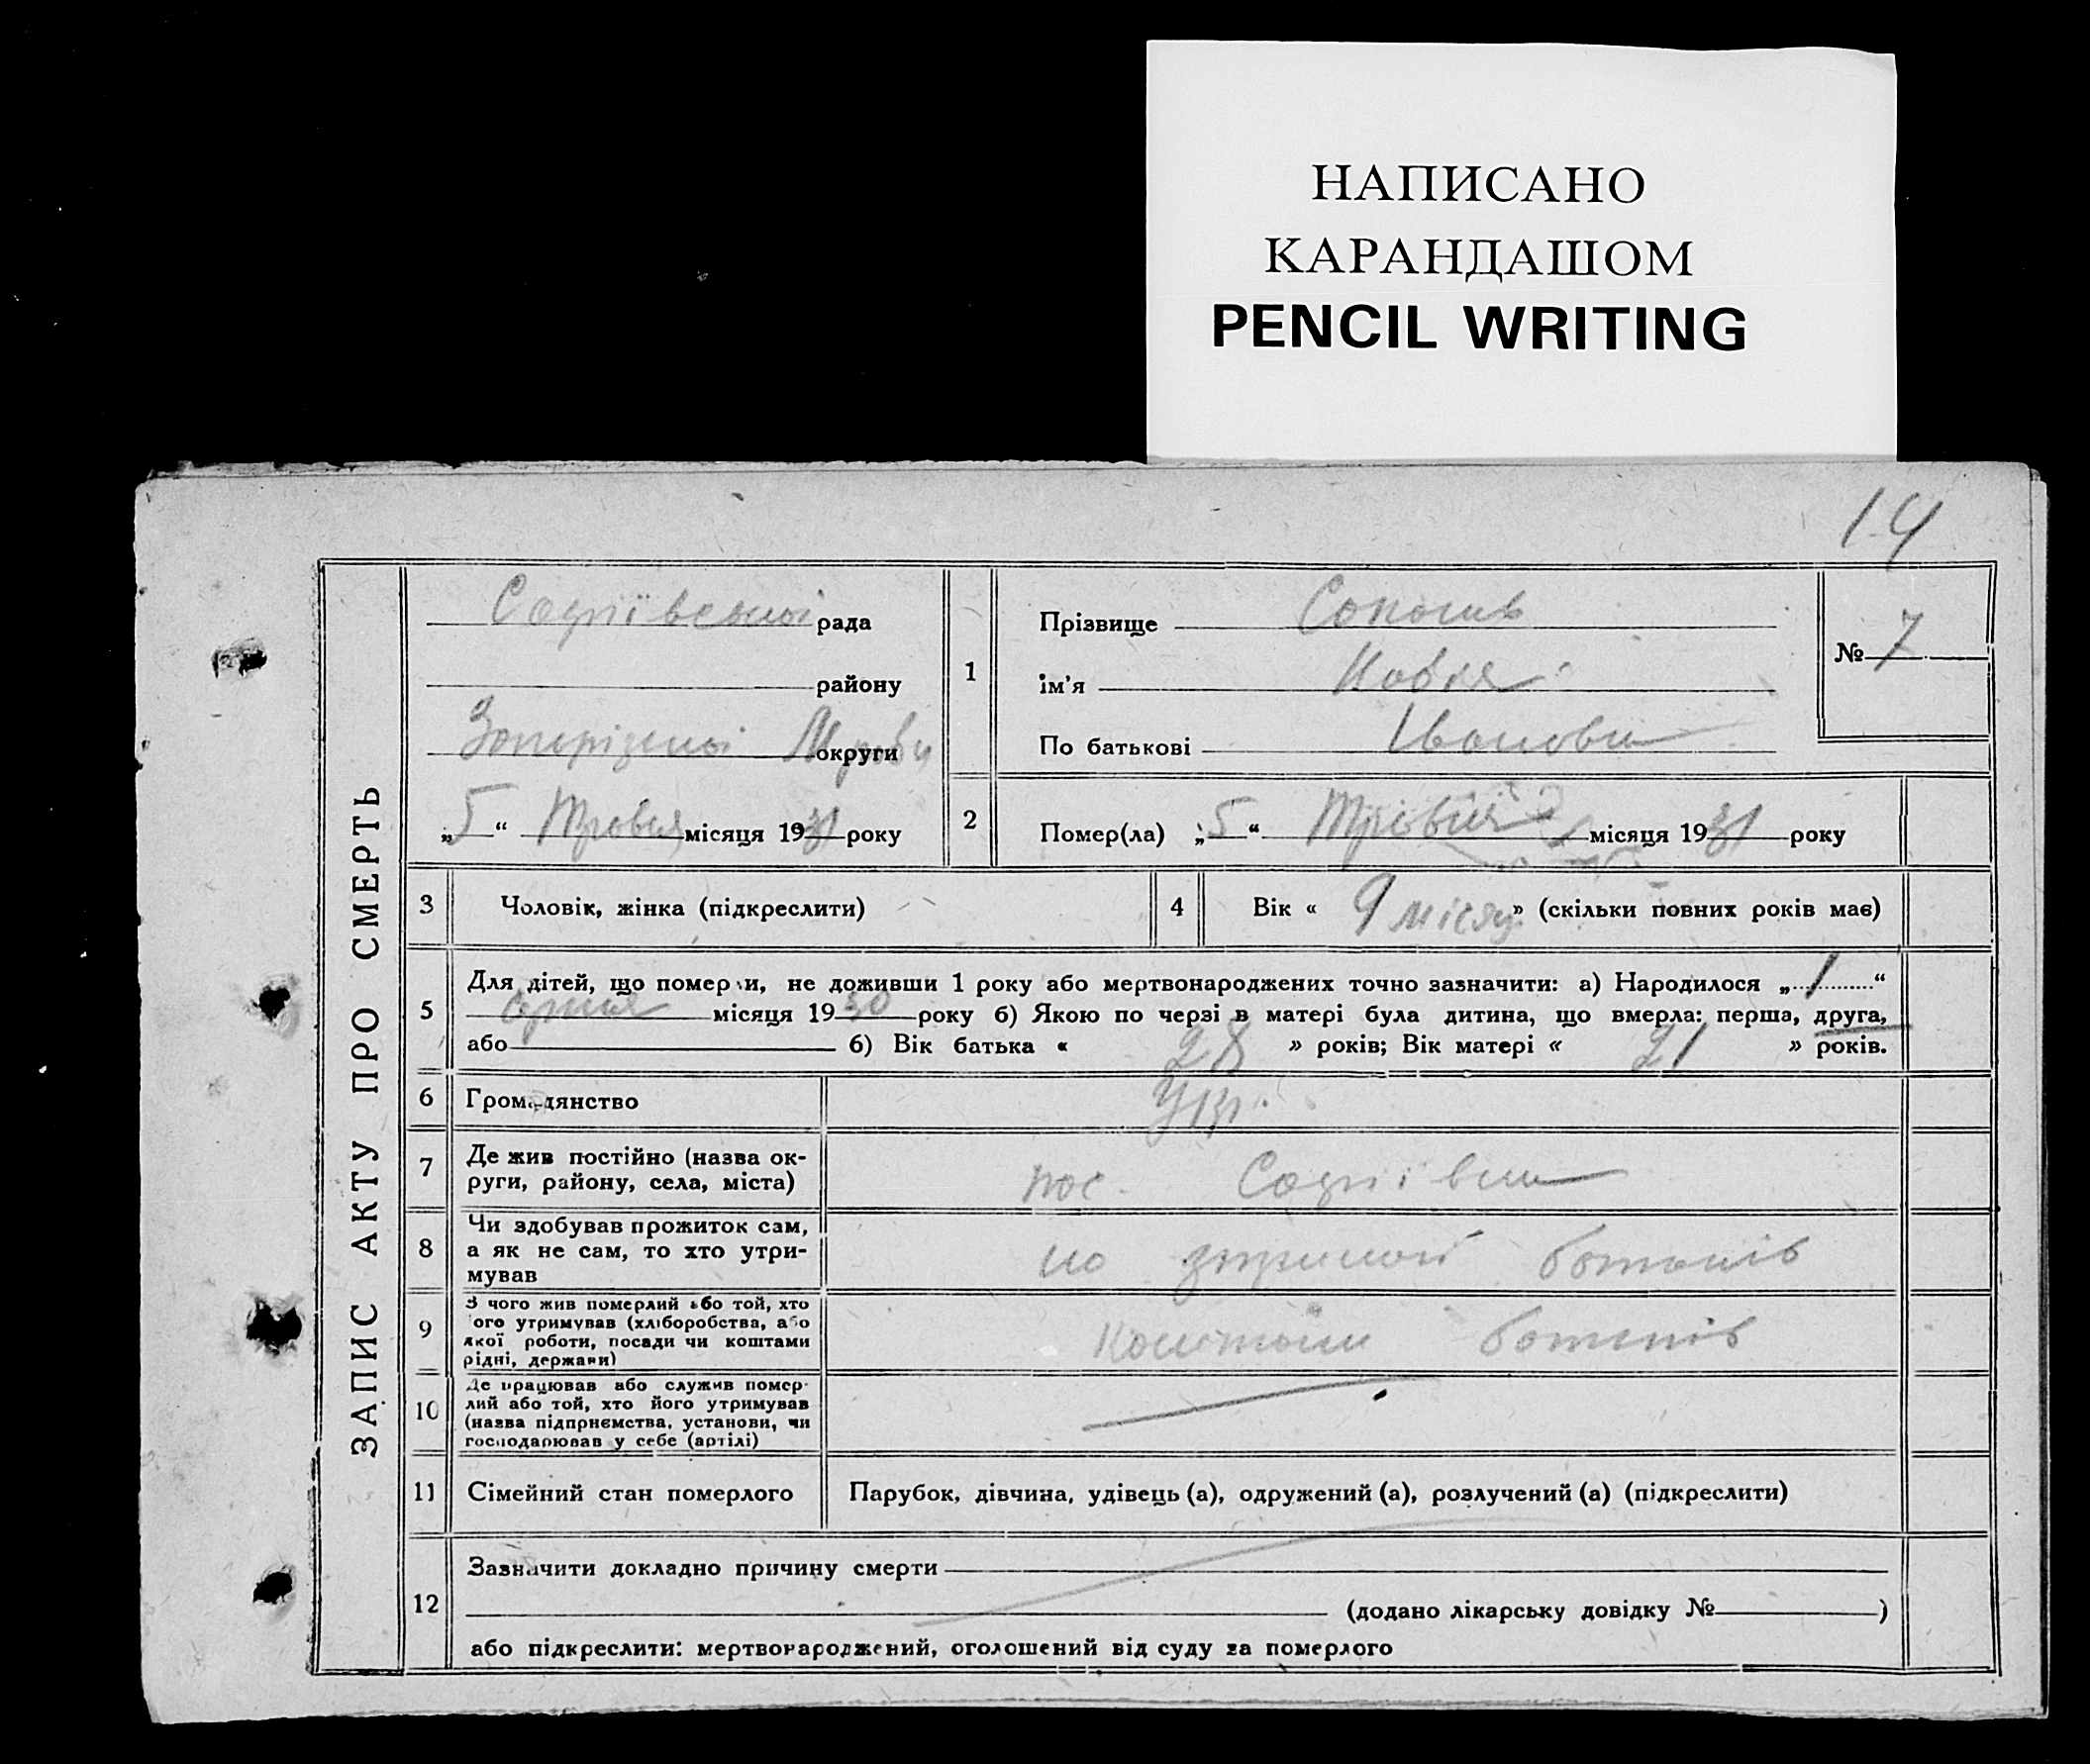 НАПИСАНО
КАРАНДАШОМ
PENCIL WRITING
14
ЗАПИС АКТУ ПРО СМЕРТЬ
рада
району
округи
„5“ Травня місяця 1931 року
1
Прізвище
ім'я
По батькові
№ 7
2
Помер(ла) „5“ Травня місяця 1931 року
3
Чоловік, жінка (підкреслити)
4
Вік « 9 місяц. » (скільки повних років має)
5
Для дітей, що померли, не доживши 1 року або мертвонароджених точно зазначити: а) Народилося „1“
серпня місяця 1930 року б) Якою по черзі в матері була дитина, що вмерла: перша, друга,
або б) Вік батька « 28 » років; Вік матері « 21 » років.
6
Громадянство
Укр.
7
Де жив постійно (назва ок-
руги, району, села, міста)
пос.
8
Чи здобував прожиток сам,
а як не сам, то хто утри-
мував
батьків
9
З чого жив померлий або той, хто
його утримував (хліборобства, або
якої роботи, посади чи коштами
рідні, держави)
Коштами батьків
10
Де працював або служив помер-
лий або той, хто його утримував
(назва підприємства, установи, чи
господарював у себе (артілі)
11
Сімейний стан померлого
Парубок, дівчина, удівець (а), одружений (а), розлучений (а) (підкреслити)
12
Зазначити докладно причину смерти
(додано лікарську довідку № )
або підкреслити: мертвонароджений, оголошений від суду за померлого